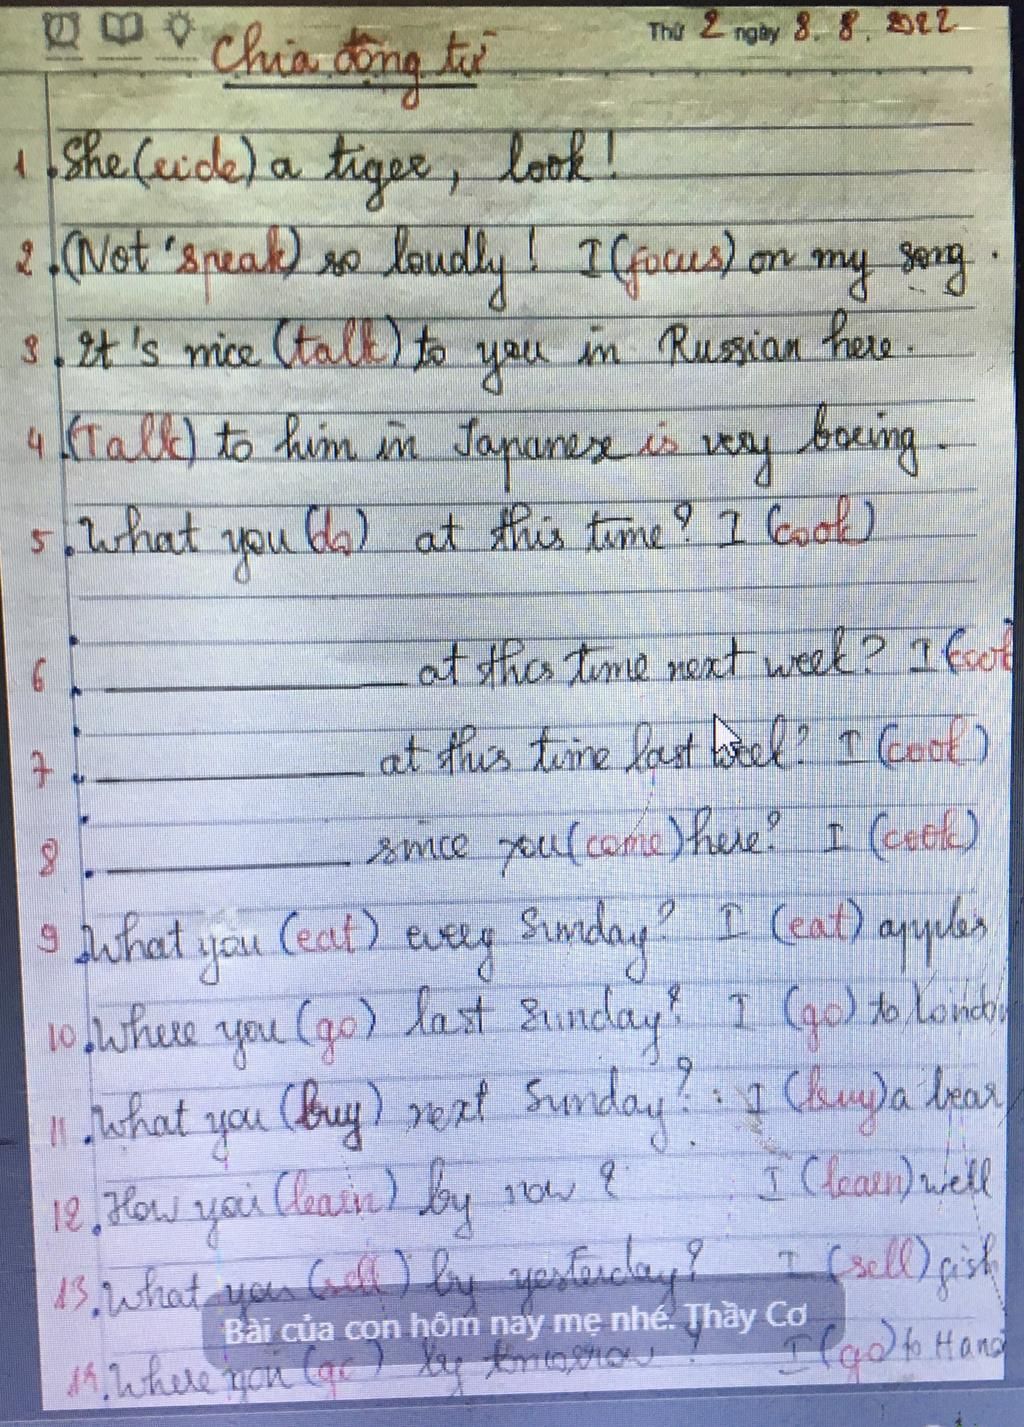 Thứ 2 ngày 8. 8. 2022
Chia động từ
1. She (ride) a tiger, look!
2. (Not speak) so loudly! I (focus) on my song.
3. It's nice (talk) to you in Russian here.
4. (Talk) to him in Japanese is very boring.
5. What you (do) at this time? I (cook)
6. at this time next week? I (cook
7. at this time last week? I (cook)
8. since you (come) here? I (cook)
9. What you (eat) every Sunday? I (eat) apples
10. Where you (go) last Sunday? I (go) to
11. What you (buy) next Sunday? I (buy) a bear
12. How you (learn) by now? I (learn) well
13. What you (sell) by yesterday? I (sell) fish
Bài của con hôm nay mẹ nhé. Thầy Cơ
14. Where you (go) by tomorrow? I (go) to